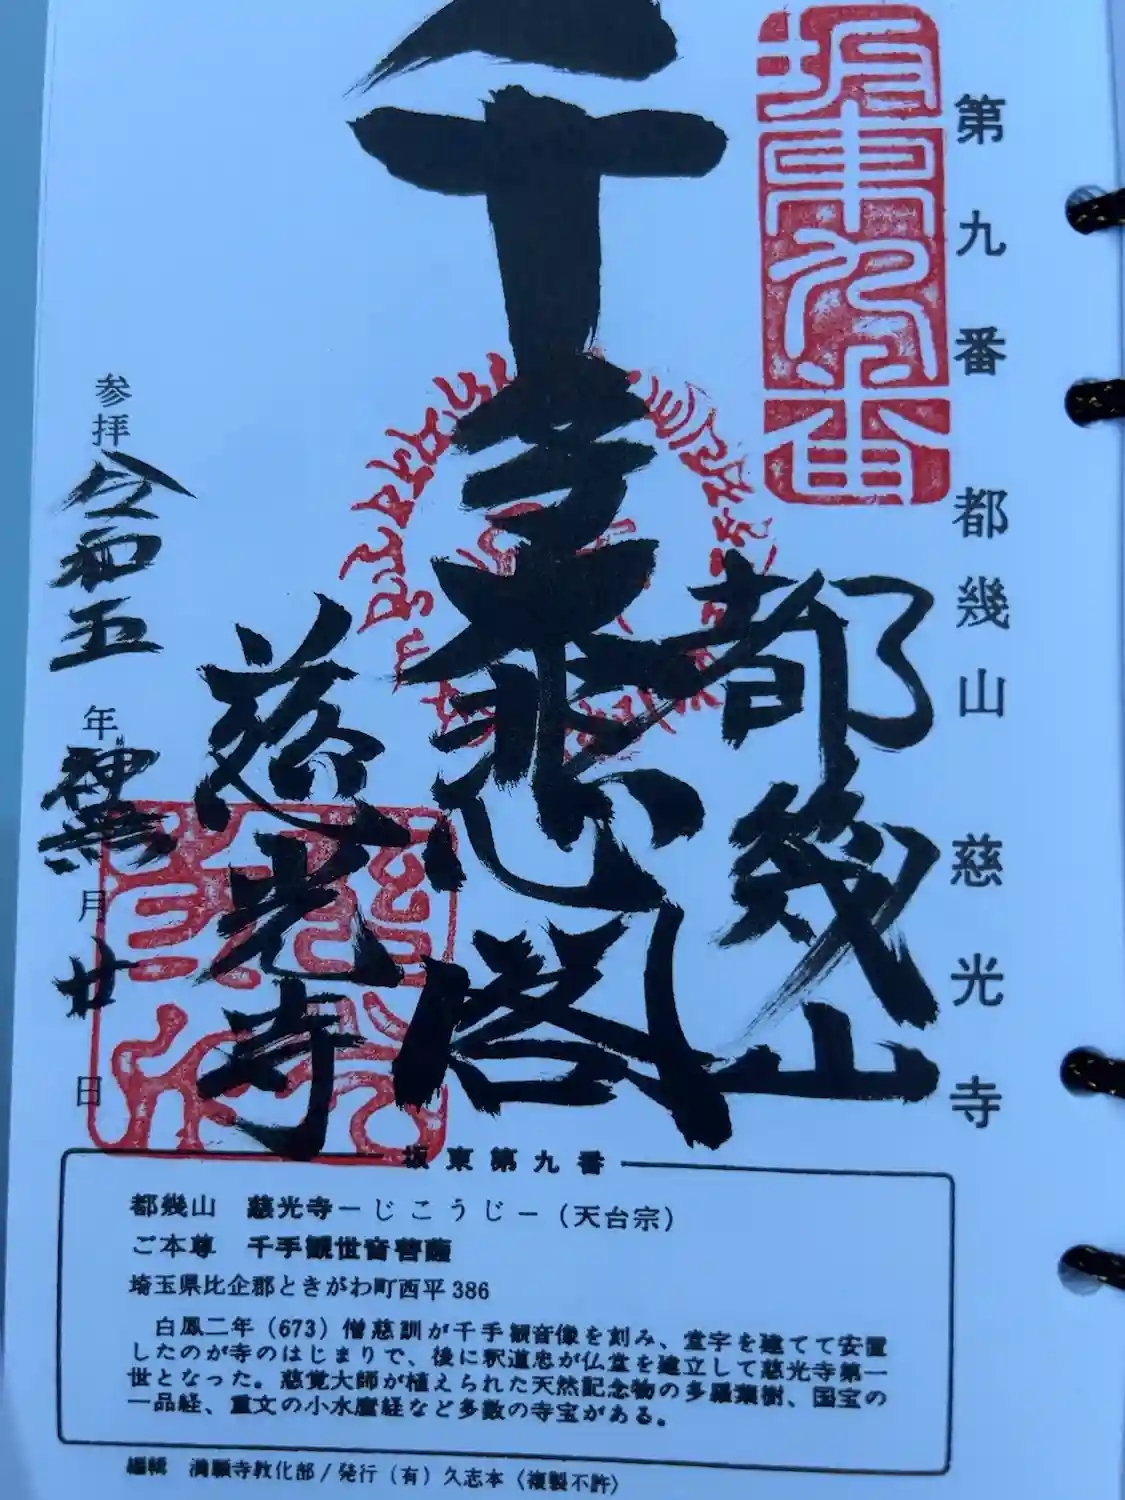 第九番 都幾山 慈光寺
坂東九番
都幾山
千手大悲閣
慈光寺
参拝 令和五年 神無月 廿日
坂東第九番
都幾山 慈光寺－じこうじ－(天台宗)
ご本尊 千手観世音菩薩
埼玉県比企郡ときがわ町西平386
白鳳二年(673)僧慈訓が千手観音像を刻み、堂宇を建てて安置
したのが寺のはじまりで、後に釈道忠が仏堂を建立して慈光寺第一
世となった。慈覚大師が植えられた天然記念物の多羅葉樹、国宝の
一品経、重文の小水麿経など多数の寺宝がある。
編輯 満願寺教化部/発行(有)久志本〈複製不許〉